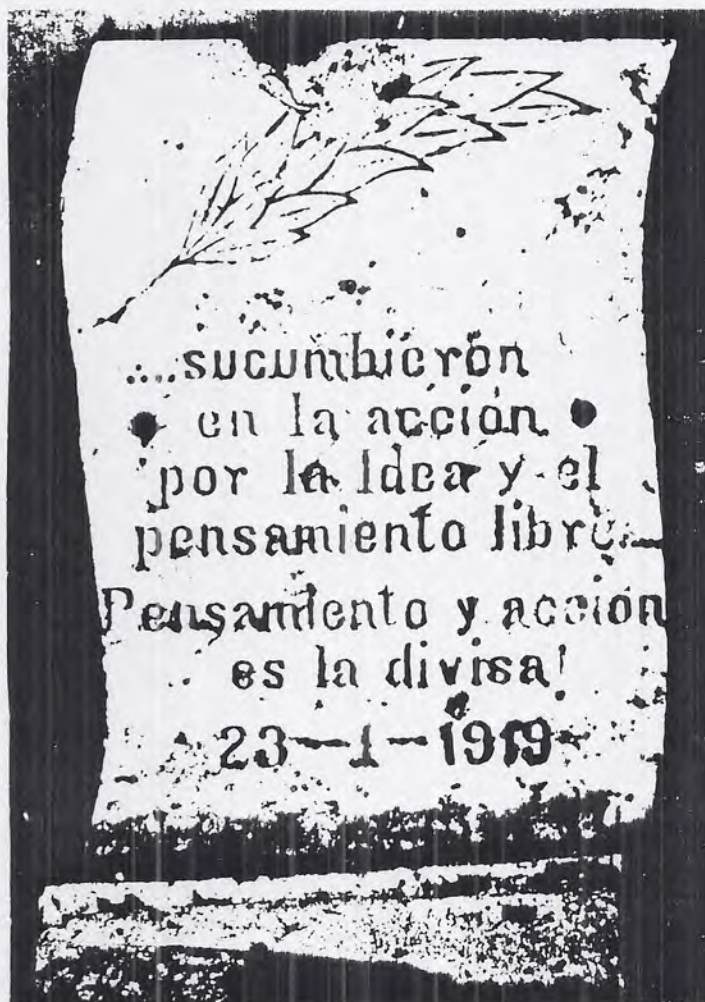 ....sucumbieron
en la acción
por la Idea y el
pensamiento libre...
Pensamiento y acción
es la divisa!
23-1-1919